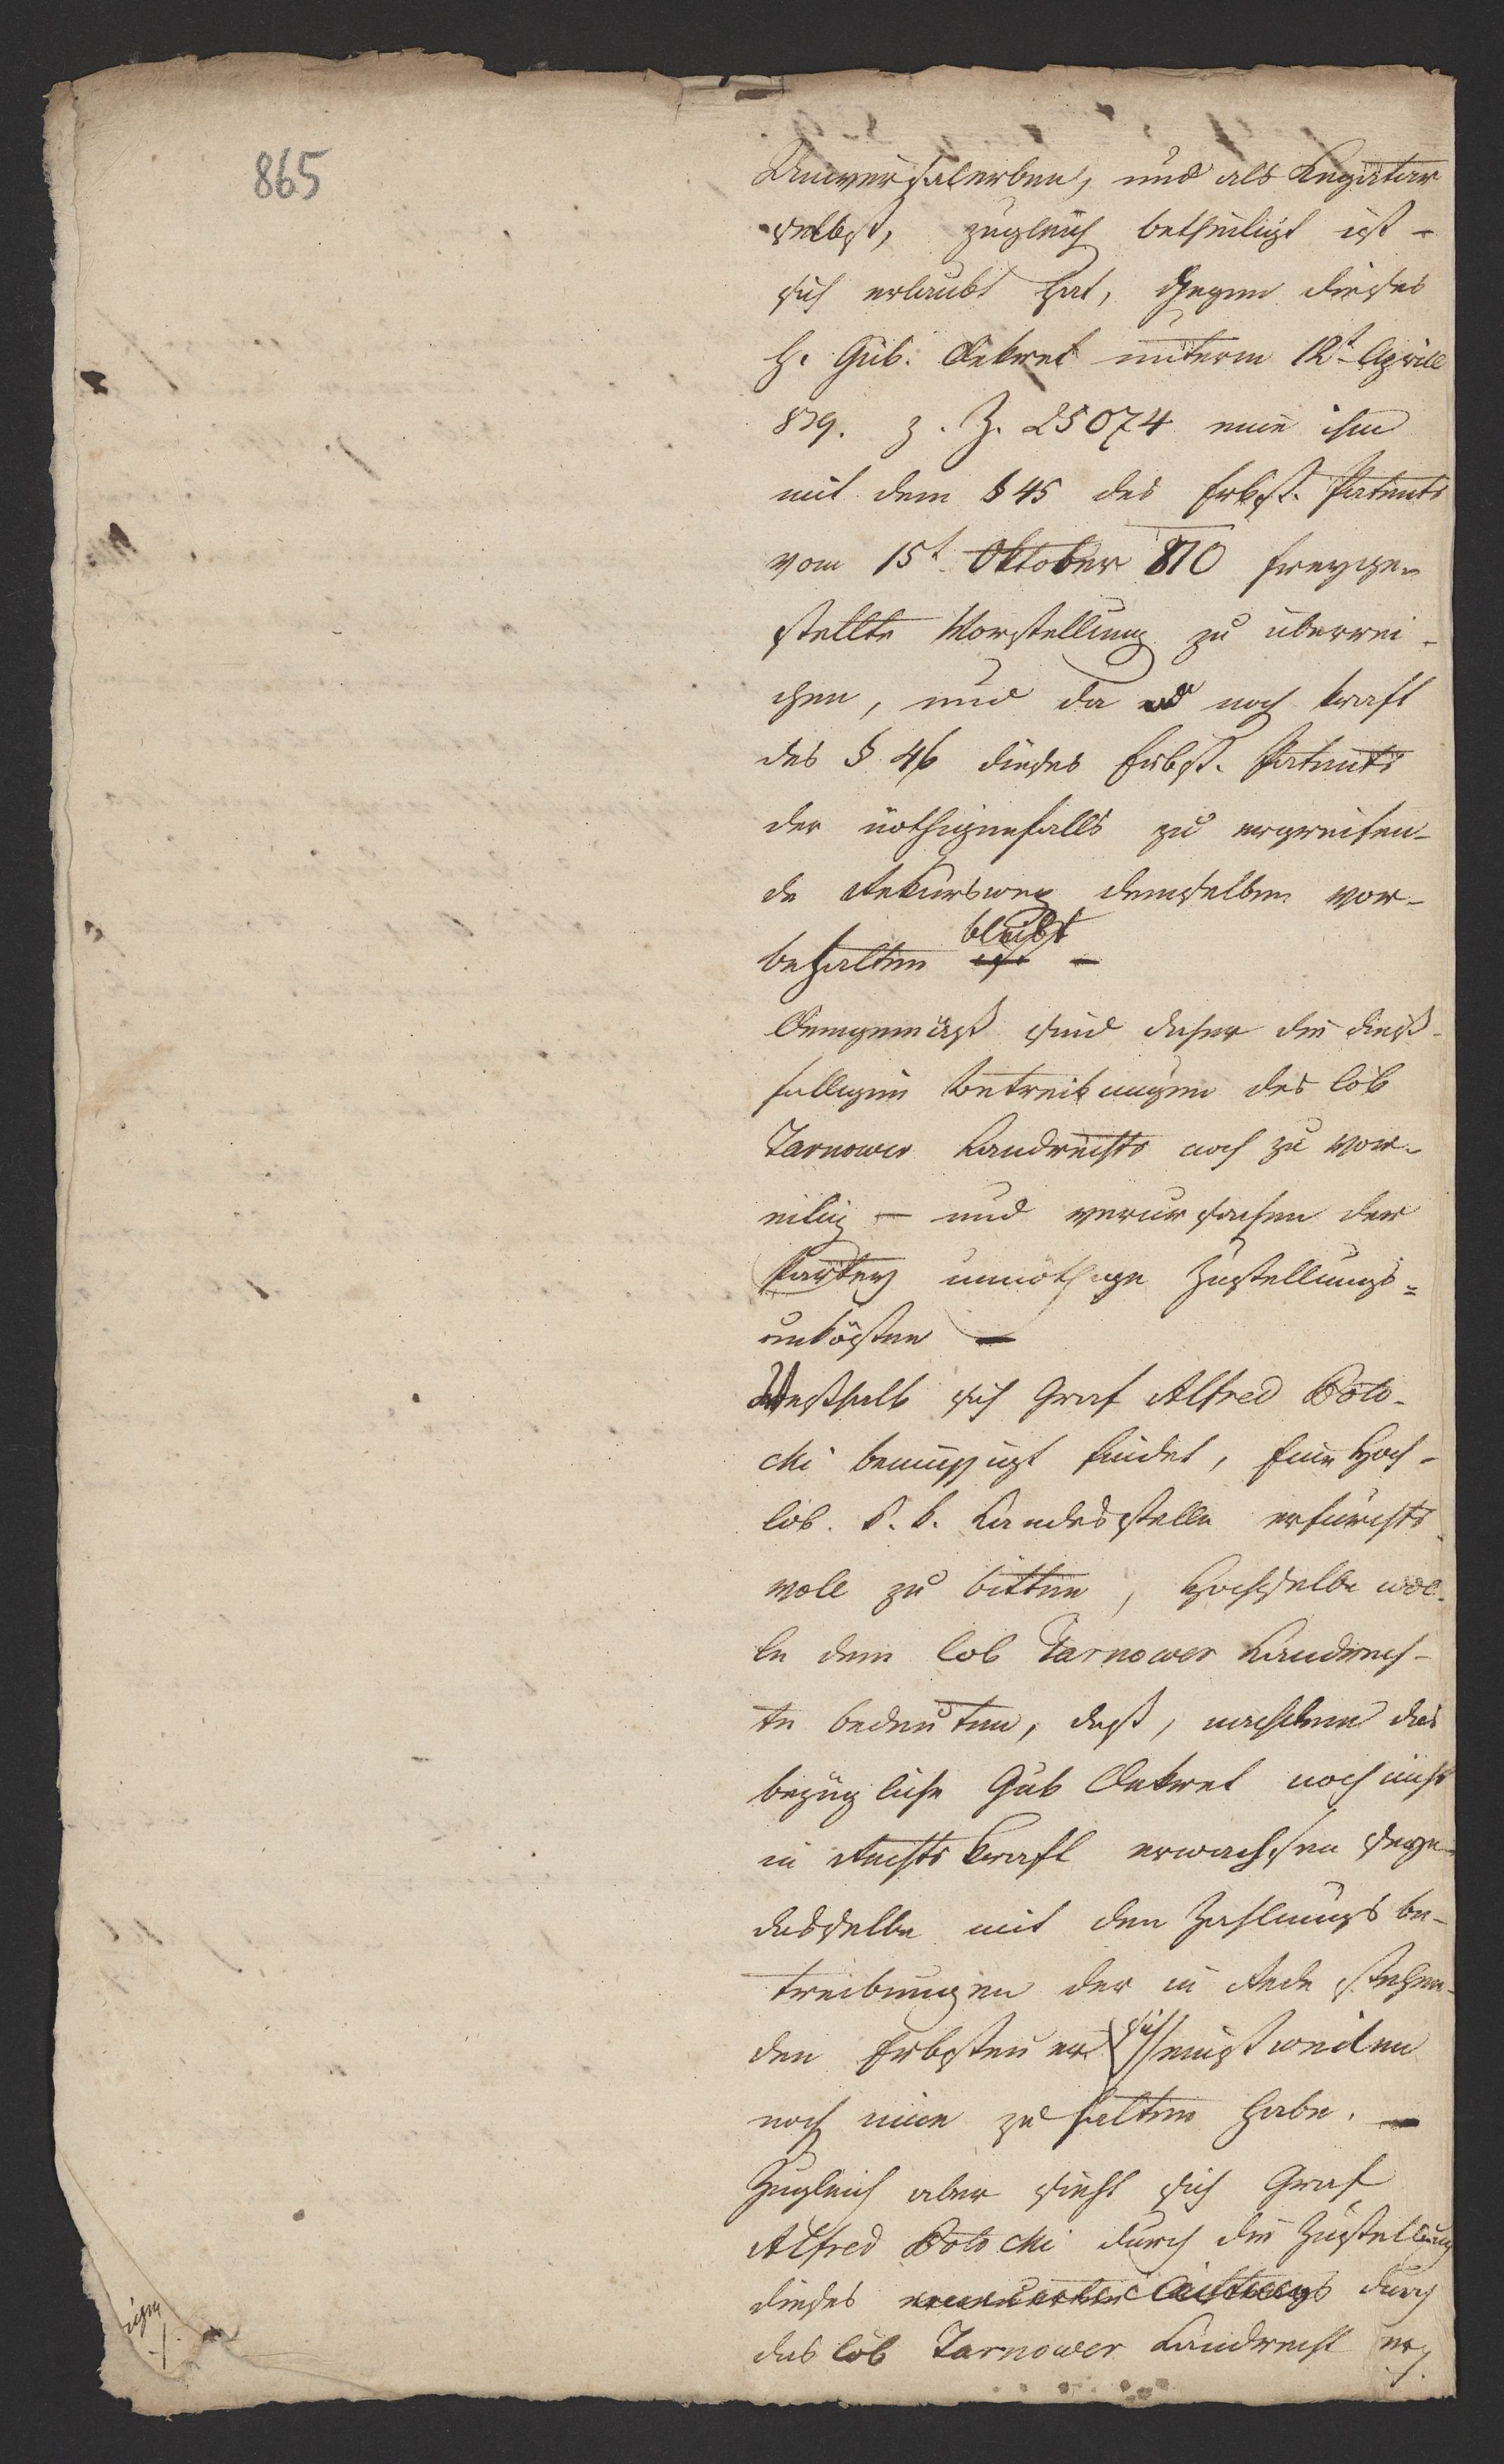 865
Universalerben, und als Legatar
selbst, zugleich betheiligt ist –
sich erlaubt hat, gegen dieses
h. Gub. Dekret unterm 12t April
839. z. Z. 25074 eine ihm
mit dem § 45 des Erbst. Patents
vom 15t Oktober 810 freyge-
stellte Vorstellung zu überrei-
chen, und da noch kraft
des § 46 dieses Erbst. Patents
der nöthigenfalls zu ergreifen-
de Rekursweg demselben vor-
bleibt
behalten ist –
Demgemäß sind daher die dieß-
falligen Betreibungen des löb
Tarnower Landrechts noch zu vor-
eilig – und verursachen der
Parthey unnöthige Zustellungs=
unkösten –
Weßhalb sich Graf Alfred Poto-
cki bemüssigt findet, Eine Hoch-
löb. k. k. Landesstelle erfurchts-
voll zu bitten, Hochselbe wol-
le dem löb Tarnower Landrech-
te bedeuten, daß, nachdem das
bezügliche Gub Dekret noch nicht
in Rechtskraft erwachsen seye
dasselbe mit den Zahlungsbe-
treibungen der in Rede stehen-
den Erbsteuer sich einstweilen
noch inne zu halten habe. –
Zugleich aber sieht sich Graf
Alfred Potocki durch die Zustellung
dieses durch
das löb Tarnower Landrecht